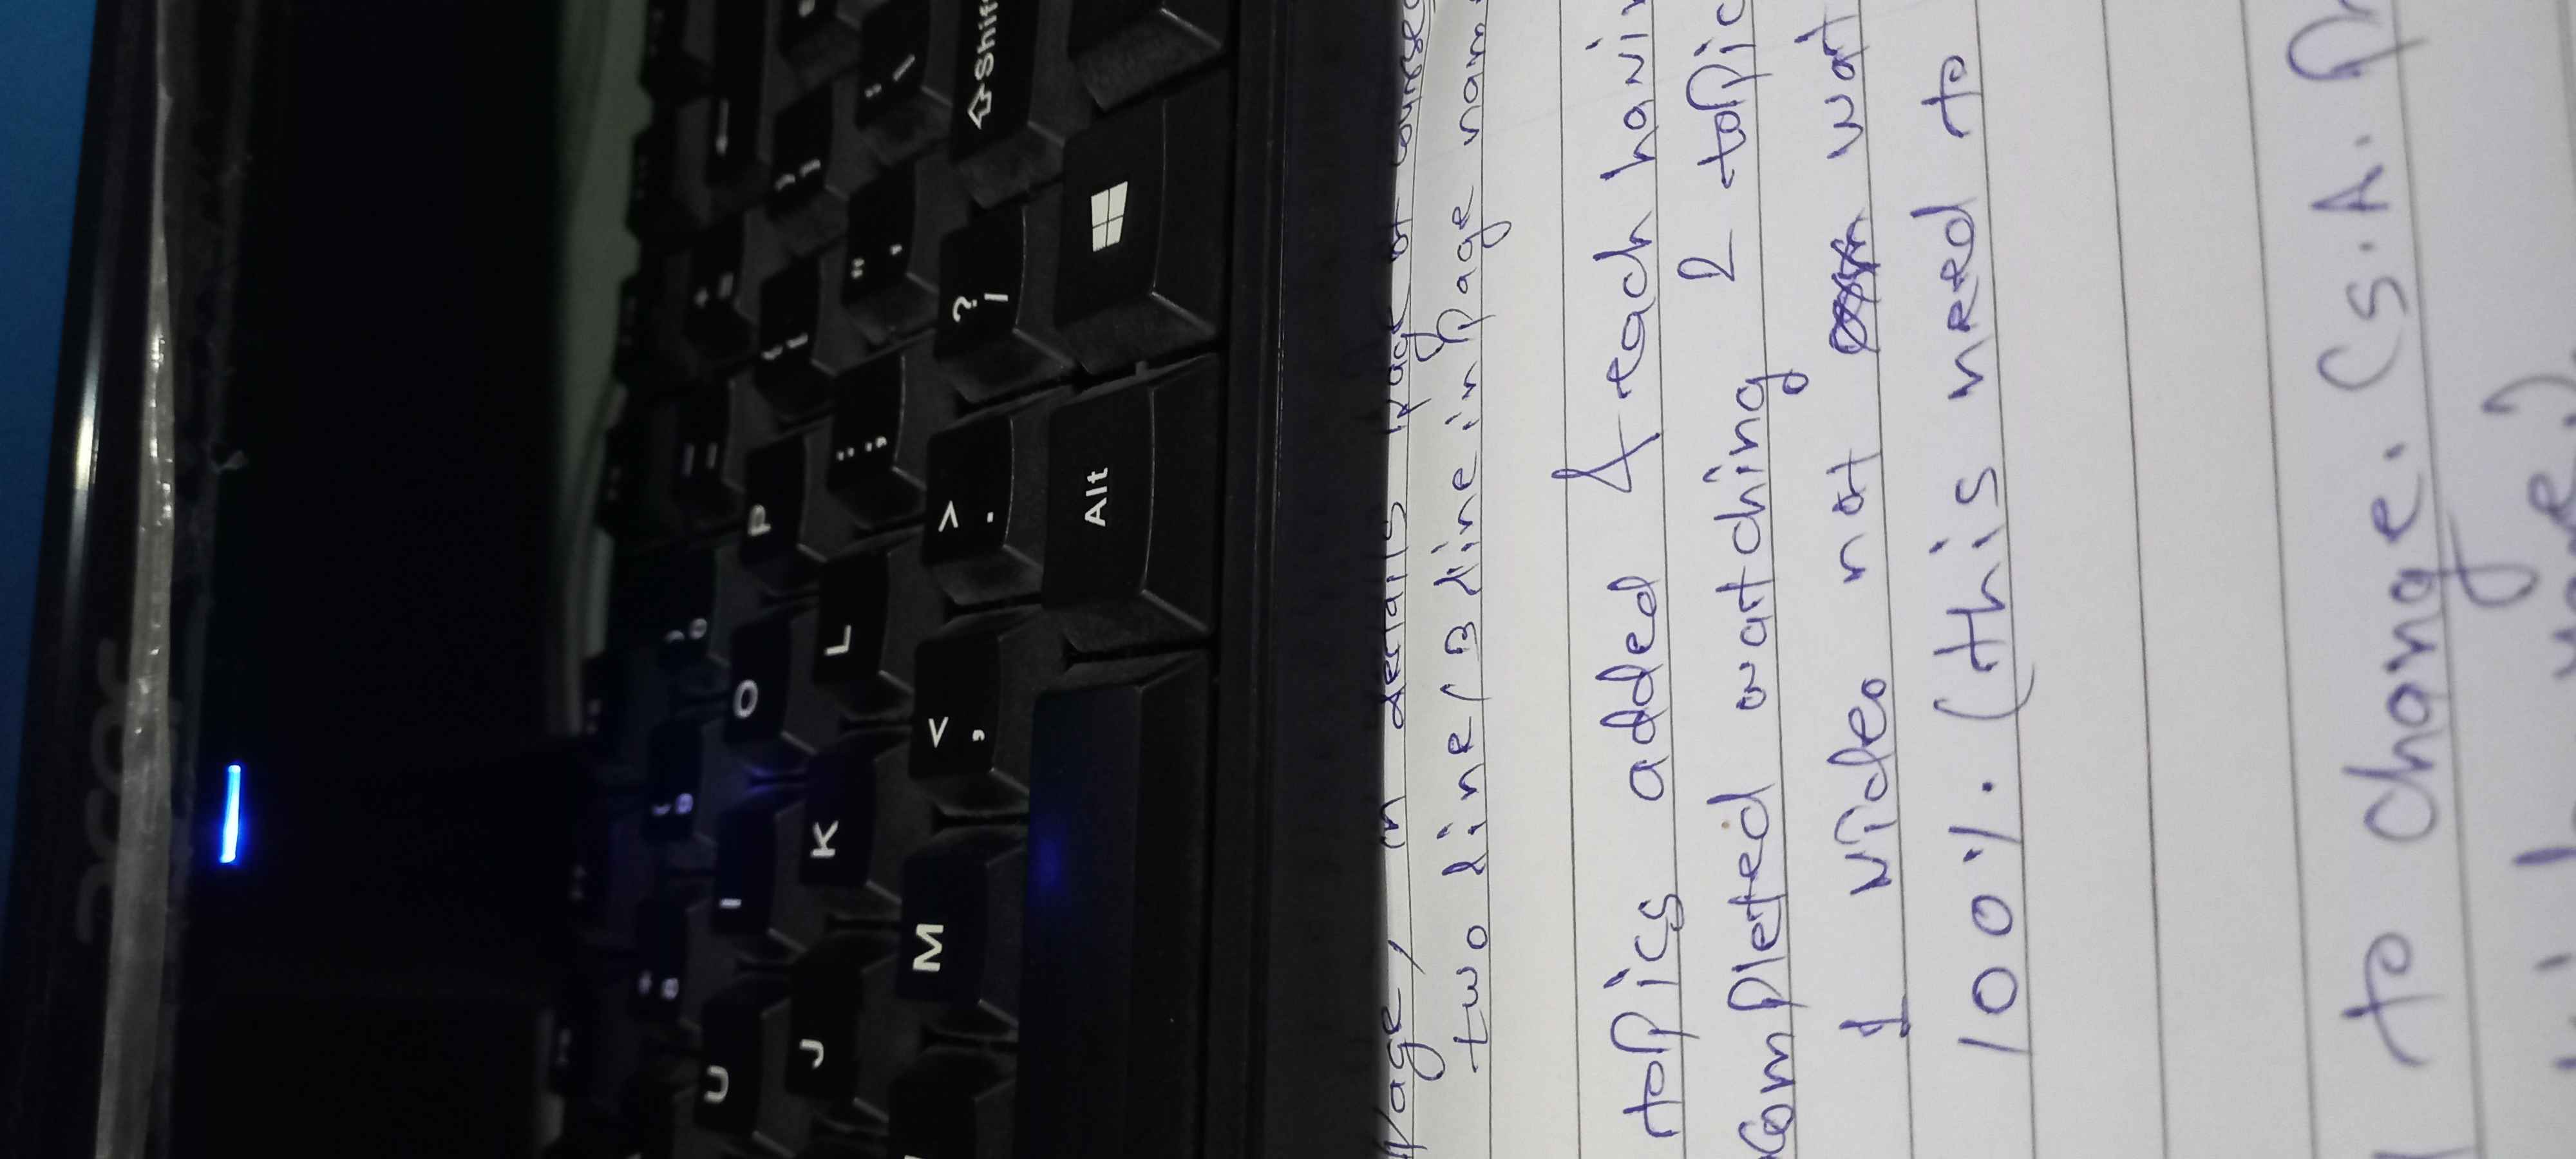 acer
U I O P
J K L
M < , > . ? / Shif
Alt
Page, in details page of courses
two line/3 line in Page nam
topics added & each havin
completed watching 2 topic
1 video not wat
100%. (this need to
to change. (S.A. Pr